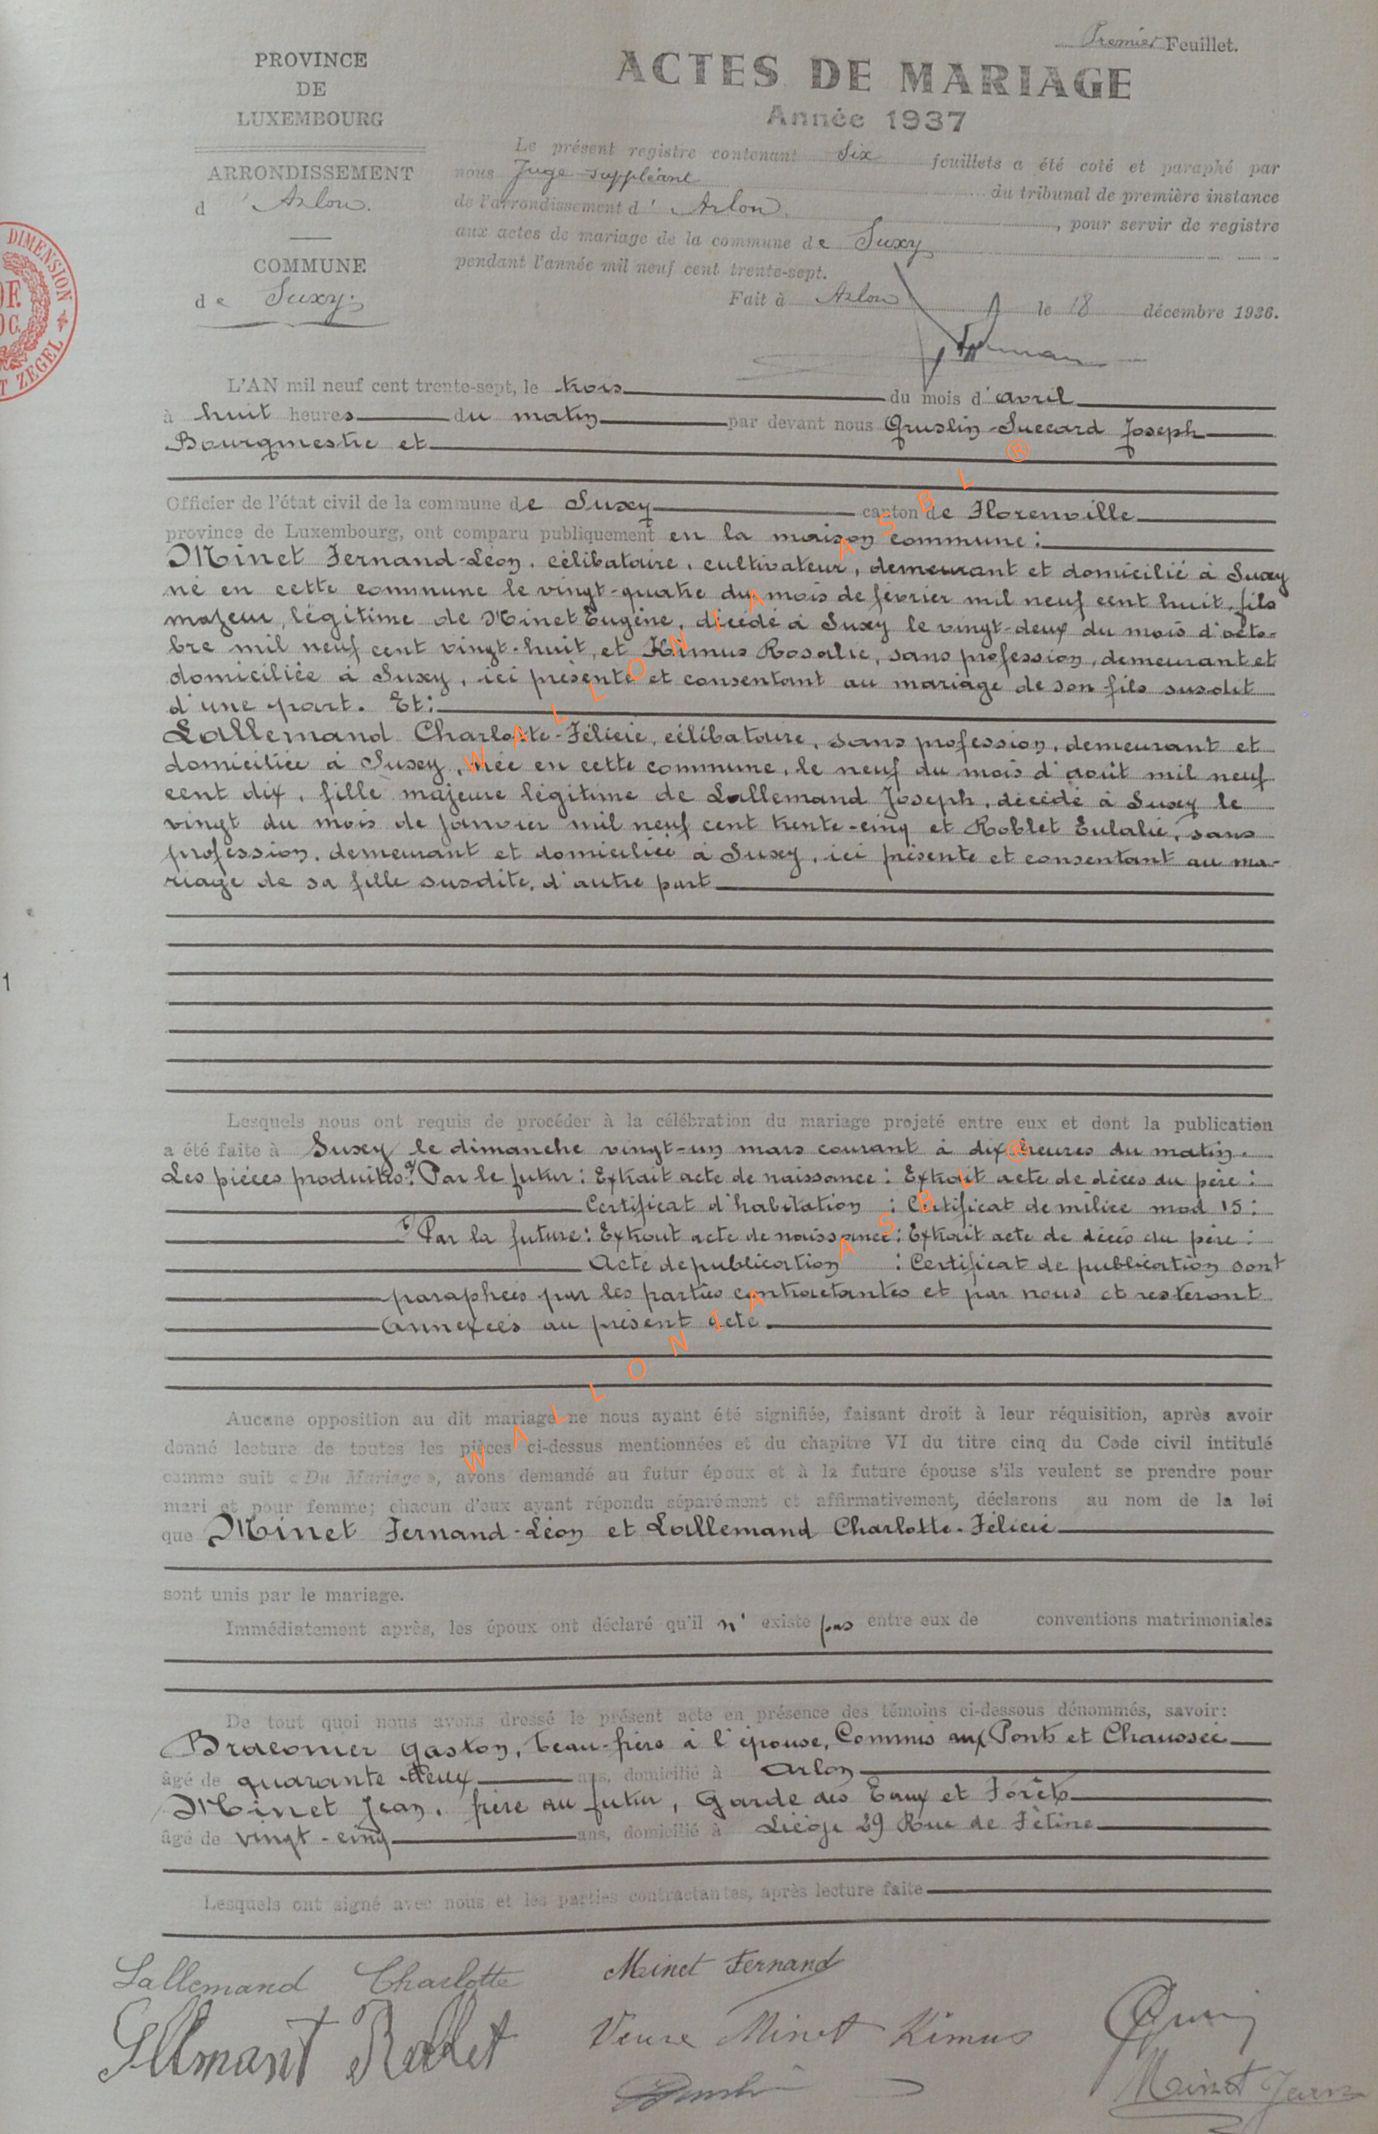 Premier Feuillet.
PROVINCE
DE
LUXEMBOURG
ARRONDISSEMENT
d' Arlon.
COMMUNE
de Suxy.
ACTES DE MARIAGE
Année 1937
Le présent registre contenant Six feuillets a été coté et paraphé par
nous Juge suppléant du tribunal de première instance
de l'arrondissement d' Arlon. , pour servir de registre
aux actes de mariage de la commune de Suxy
pendant l'année mil neuf cent trente-sept.
Fait à Arlon le 18 décembre 1936.
DIMENSION
ZEGEL
L'AN mil neuf cent trente-sept, le trois du mois d'avril
à huit heures du matin par devant nous Gruslin-Succard Joseph
Bourgmestre et
Officier de l'état civil de la commune de Suxy canton de Florenville
province de Luxembourg, ont comparu publiquement en la maison commune:
Minet Fernand-Léon, célibataire, cultivateur, demeurant et domicilié à Suxy
né en cette commune le vingt-quatre du mois de février mil neuf cent huit, fils
majeur, légitime de Minet Eugène, décédé à Suxy le vingt-deux du mois d'octo-
bre mil neuf cent vingt-huit, et Kimus Rosalie, sans profession, demeurant et
domiciliée à Suxy, ici présente et consentant au mariage de son fils susdit
d'une part. Et:
Lallemand Charlotte-Félicie, célibataire, sans profession, demeurant et
domiciliée à Suxy, née en cette commune, le neuf du mois d'août mil neuf
cent dix, fille majeure légitime de Lallemand Joseph, décédé à Suxy le
vingt du mois de janvier mil neuf cent trente-cinq et Roblet Eulalie, sans
profession, demeurant et domiciliée à Suxy, ici présente et consentant au ma-
riage de sa fille susdite, d'autre part
1
Lesquels nous ont requis de procéder à la célébration du mariage projeté entre eux et dont la publication
a été faite à Suxy le dimanche vingt-un mars courant à dix heures du matin.
Les pièces produites: Par le futur: Extrait acte de naissance: Extrait acte de décès du père:
Certificat d'habitation : Certificat de milice mod 15:
Par la future: Extrait acte de naissance: Extrait acte de décès du père:
Acte de publication : Certificat de publication sont
paraphées par les parties contractantes et par nous et resteront
annexées au présent acte.
Aucune opposition au dit mariage ne nous ayant été signifiée, faisant droit à leur réquisition, après avoir
donné lecture de toutes les pièces ci-dessus mentionnées et du chapitre VI du titre cinq du Code civil intitulé
comme suit « Du Mariage », avons demandé au futur époux et à la future épouse s'ils veulent se prendre pour
mari et pour femme; chacun d'eux ayant répondu séparément et affirmativement, déclarons au nom de la loi
que Minet Fernand-Léon et Lallemand Charlotte-Félicie
sont unis par le mariage.
Immédiatement après, les époux ont déclaré qu'il n' existe pas entre eux de conventions matrimoniales
De tout quoi nous avons dressé le présent acte en présence des témoins ci-dessous dénommés, savoir:
Braconier Gaston, beau-frère à l'épouse, Commis aux Ponts et Chaussée
âgé de quarante-deux ans, domicilié à Arlon
Minet Jean, frère au futur, Garde des Eaux et Forêts
âgé de vingt-cinq ans, domicilié à Liége 29 Rue de Fétine
Lesquels ont signé avec nous et les parties contractantes, après lecture faite
Lallemand Charlotte Minet Fernand
Roblet Veuve Minet Kimus
Minet Jean
WALLONIA ASBL ®
WALLONIA ASBL ®